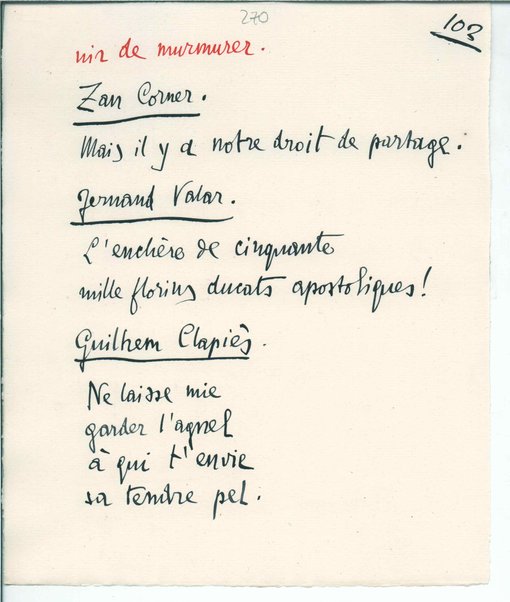 270
103
nir de murmurer.
Zan Corner.
Mais il y a notre droit de partage.
Fernand Valar.
L'enchère de cinquante
mille florins ducats apostoliques!
Guilhem Clapiès.
Ne laisse mie
garder l'agnel
à qui t'envie
sa tendre pel.